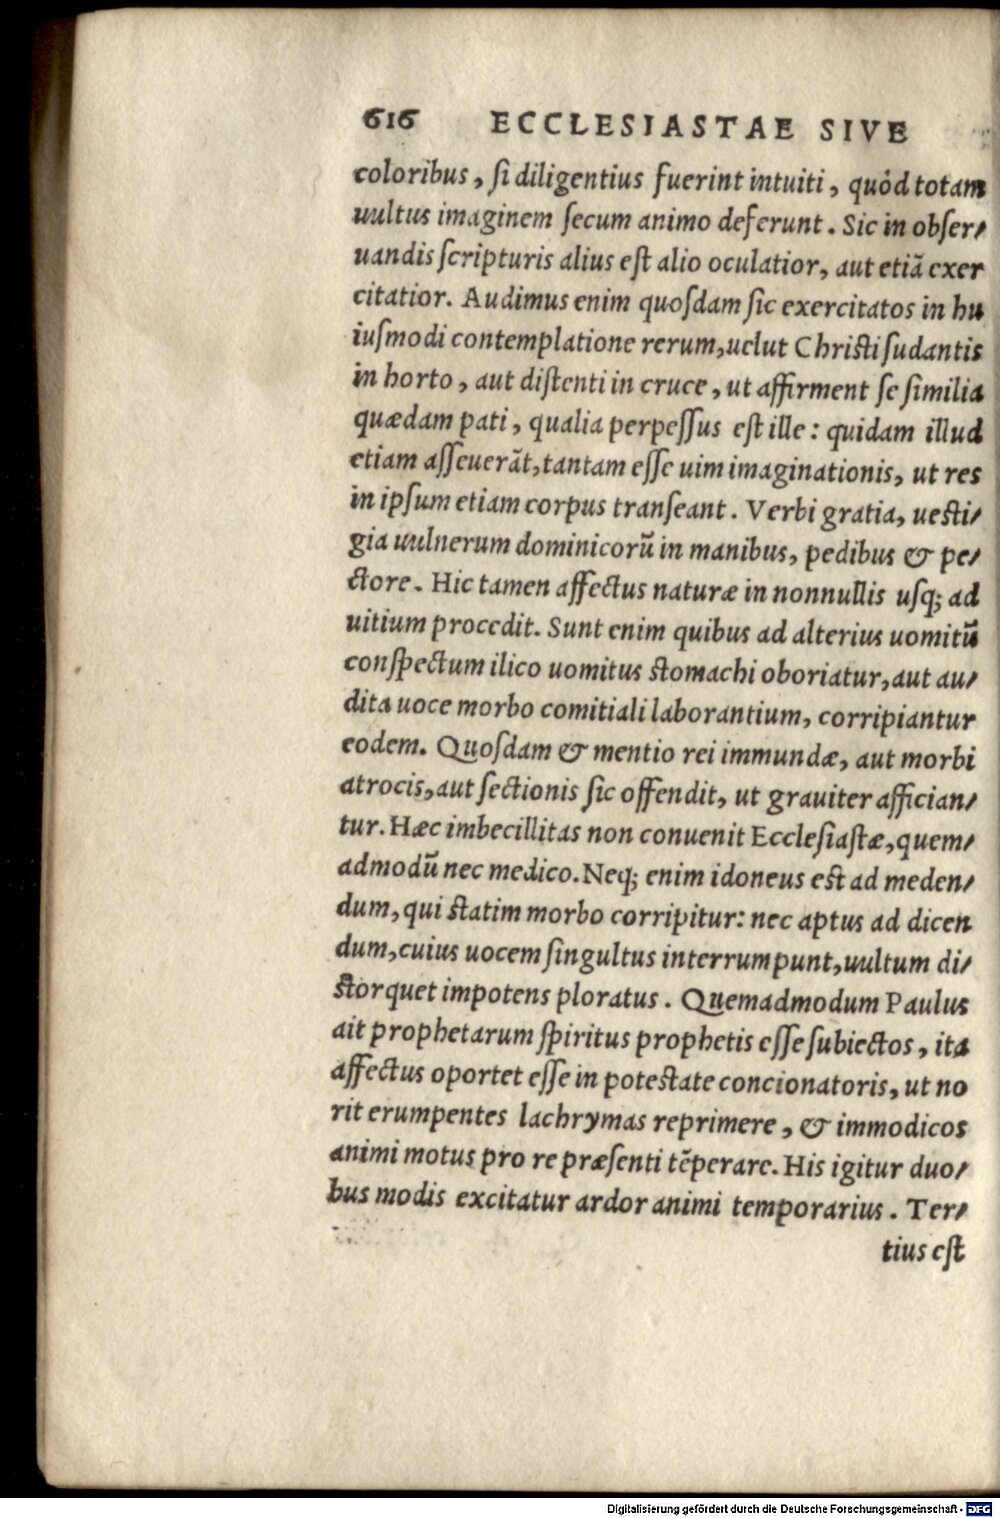 616 ECCLESIASTAE SIVE
coloribus, ſi diligentius fuerint intuiti, quòd totam
uultus imaginem ſecum animo deferunt. Sic in obſer/
uandis ſcripturis alius eſt alio oculatior, aut etiã exer
citatior. Audimus enim quoſdam ſic exercitatos in hu
iuſmodi contemplatione rerum, uelut Chriſti ſudantis
in horto, aut diſtenti in cruce, ut affirment ſe ſimilia
quædam pati, qualia perpeſſus eſt ille: quidam illud
etiam aſſeuerãt, tantam eſſe uim imaginationis, ut res
in ipſum etiam corpus tranſeant. Verbi gratia, ueſti/
gia uulnerum dominicorũ in manibus, pedibus & pe/
ctore. Hic tamen affectus naturæ in nonnullis uſq; ad
uitium procedit. Sunt enim quibus ad alterius uomitũ
conſpectum ilico uomitus ſtomachi oboriatur, aut au/
dita uoce morbo comitiali laborantium, corripiantur
eodem. Quoſdam & mentio rei immundæ, aut morbi
atrocis, aut ſectionis ſic offendit, ut grauiter affician/
tur. Hæc imbecillitas non conuenit Eccleſiaſtæ, quem/
admodũ nec medico. Neq; enim idoneus eſt ad meden/
dum, qui ſtatim morbo corripitur: nec aptus ad dicen
dum, cuius uocem ſingultus interrumpunt, uultum di/
ſtorquet impotens ploratus. Quemadmodum Paulus
ait prophetarum ſpiritus prophetis eſſe ſubiectos, ita
affectus oportet eſſe in poteſtate concionatoris, ut no
rit erumpentes lachrymas reprimere, & immodicos
animi motus pro re præſenti tẽperare. His igitur duo/
bus modis excitatur ardor animi temporarius. Ter/
tius eſt
Digitalisierung gefördert durch die Deutsche Forschungsgemeinschaft - DFG